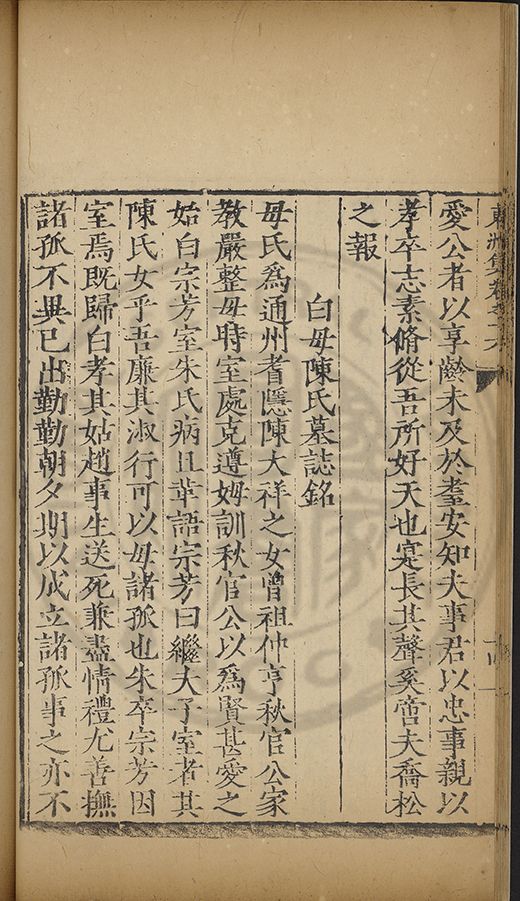 愛公者以享齡未及於耋安知夫事君以忠事親以
孝卒志素脩從吾所好天也寔長其聲奚啻夫喬松
之報
白母陳氏墓誌銘
母氏爲通州耆隱陳大祥之女曾祖仲亨秋官公家
教嚴整母時室處克遵姆訓秋官公以爲賢甚愛之
始白宗芳室朱氏病且革語宗芳曰繼夫子室者其
陳氏女乎吾廉其淑行可以母諸孤也朱卒宗芳因
室焉既歸白孝其姑趙事生送死兼盡情禮尤善撫
諸孤不異已出勤勤朝夕期以成立諸孤事之亦不